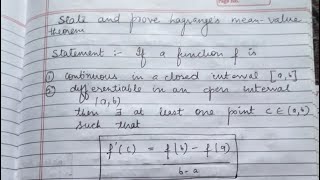 State and prove Lagrange's mean-value
theorem
Statement :- If a function f is
① continuous in a closed interval [a,b]
② differentiable in an open interval
(a,b)
then ∃ at least one point c ∈ (a,b)
such that
f'(c) = f(b) - f(a)
b-a